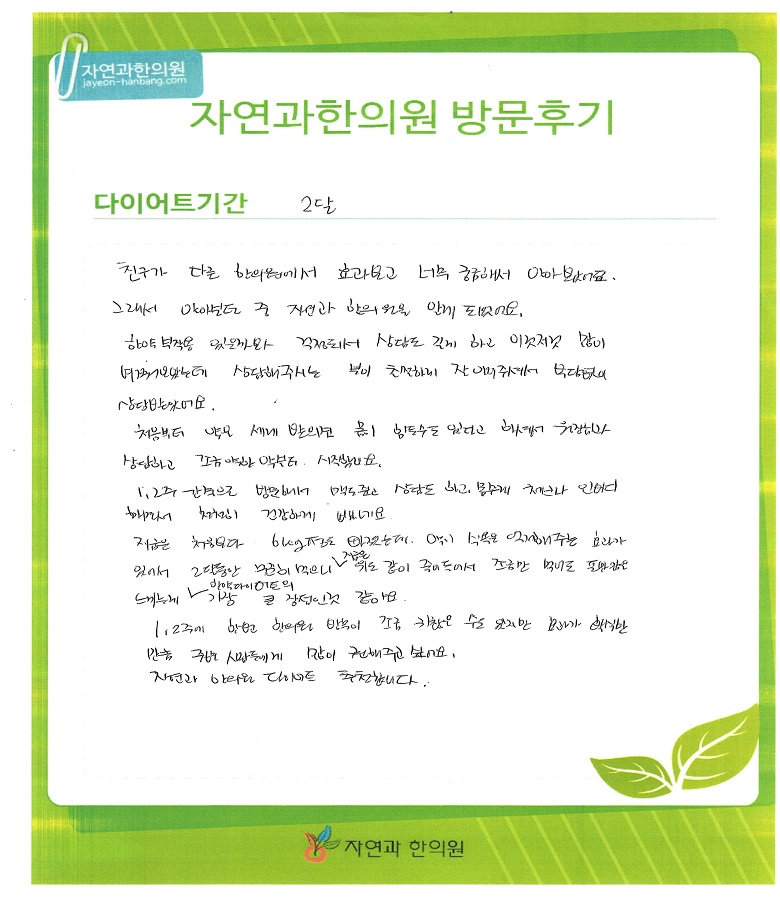 자연과한의원
jayeon-hanbang.com
자연과한의원 방문후기
다이어트기간 2달
친구가 다른 한의원에서 효과보고 너무 궁금해서 알아보았어요.
그래서 알아보던 중 자연과 한의원을 알게 되었어요.
한약 부작용 있을까봐 걱정되서 상담도 길게 하고 이것저것 많이
여쭤보았는데 상담해주시는 분이 친절하게 잘 해주셔서 부담없이
상담받았어요.
처음부터 약을 세게 받으면 몸이 힘들수도 있다고 하셔서
상담하고 조금 약한 약부터 시작했어요.
1,2주 간격으로 방문해서 체크하고 상담도 하고, 몸무게 체지방
해가면서 천천히 건강하게 빼니까요
지금은 처음보다 6kg정도 빠졌는데. 약이 식욕을 억제해주는 효과가
있어서 2달동안 꾸준히 먹으니 지금은 위도 같이 줄어들어서 조금만 먹어도 포만감을
느끼는게 한약다이어트의 가장 큰 장점인것 같아요.
1,2주에 한번 한의원 방문이 조금 귀찮을 수도 있지만 효과가 확실한
만큼 주변 사람들에게 많이 추천해주고 싶어요.
자연과 한의원 다이어트 추천합니다.
자연과 한의원